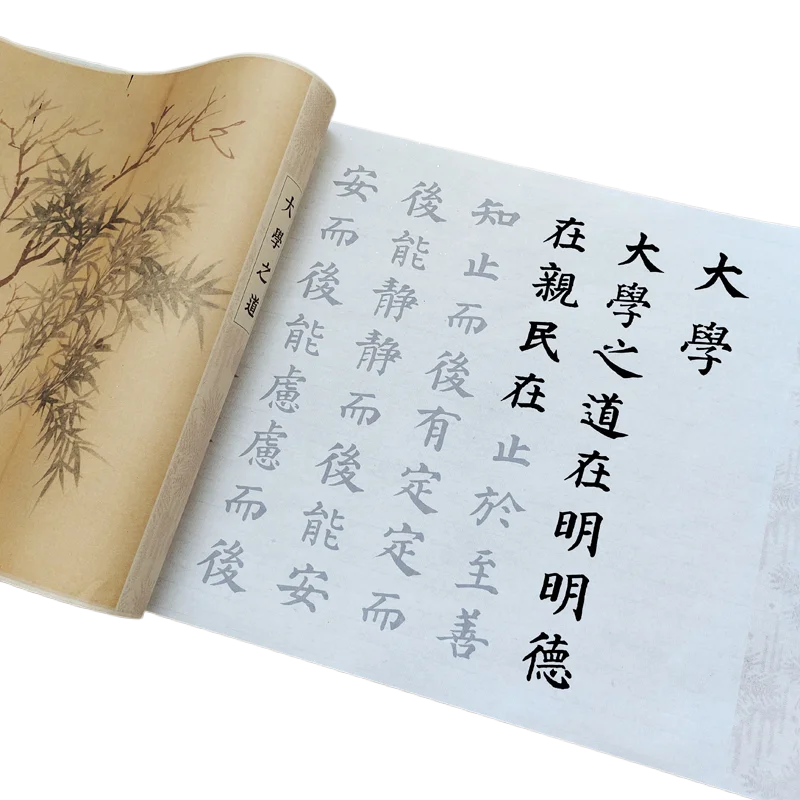 大學
大學之道在明明德
在親民在止於至善
知止而後有定定而
後能静静而後能安
安而後能慮慮而後
大學之道